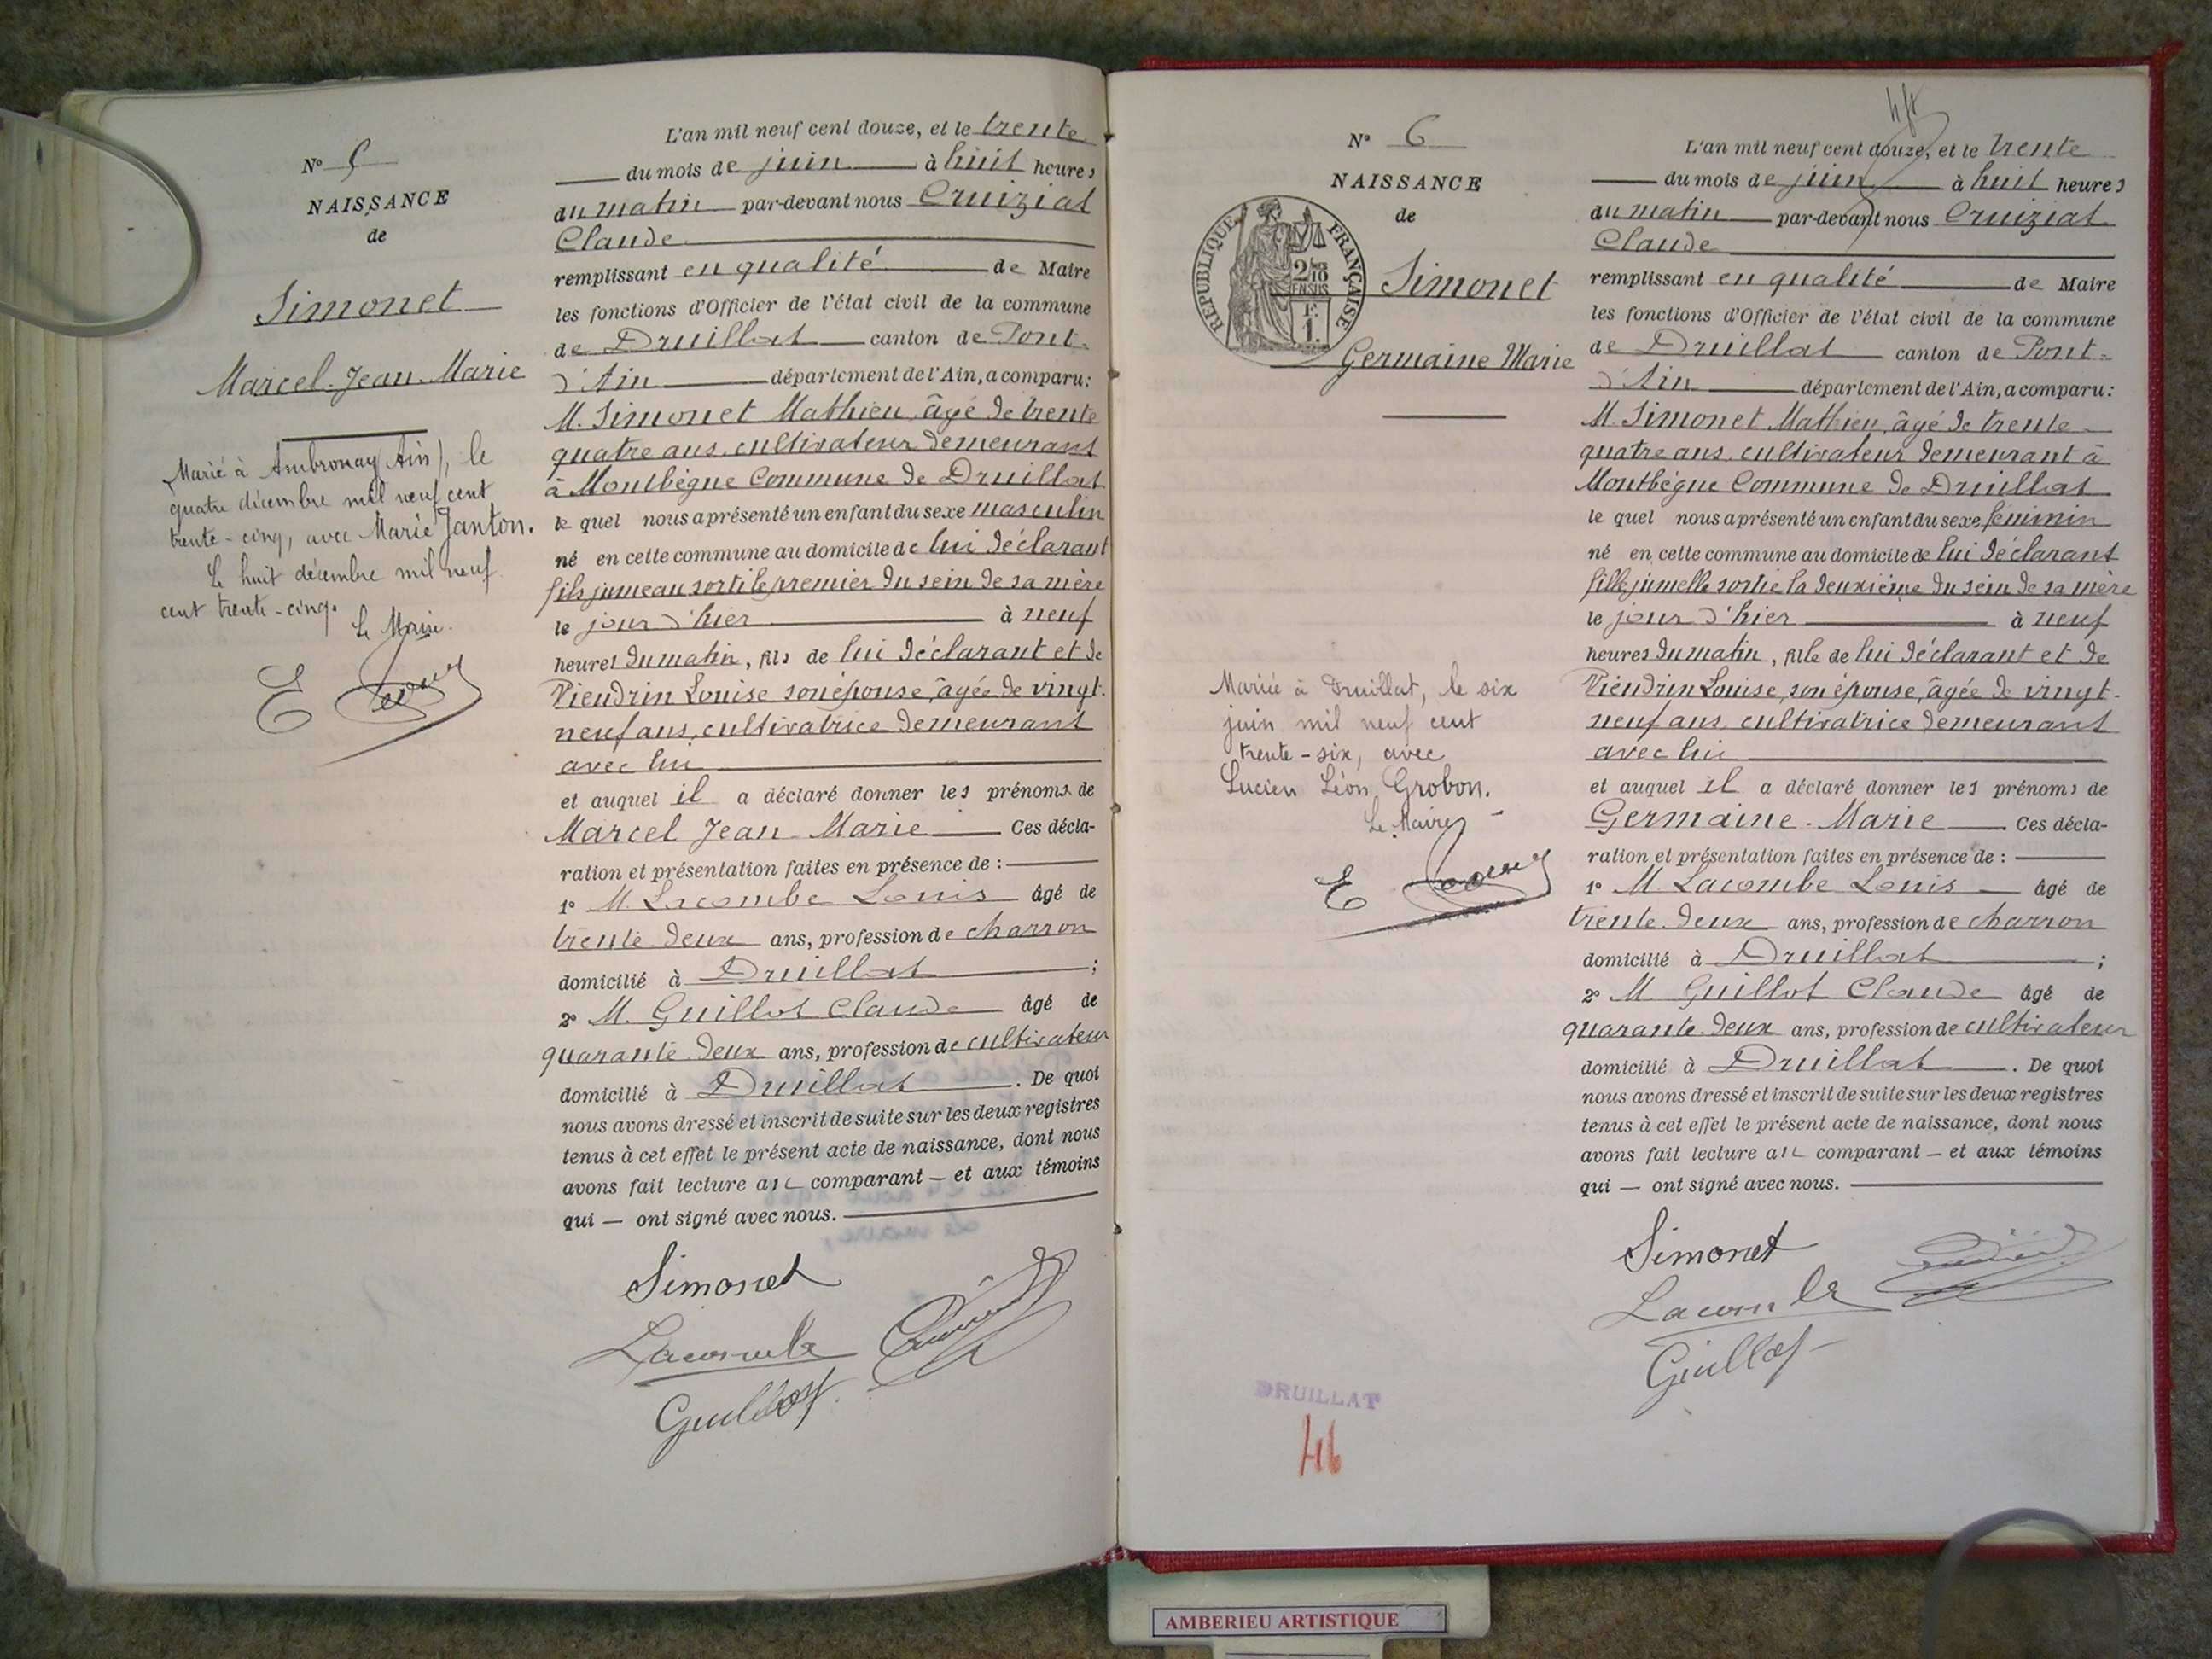 N° 5
NAISSANCE
de
Simonet
Marcel-Jean-Marie
Marié à Ambronay (Ain), le
quatre décembre mil neuf cent
trente-cinq, avec Marie Janton.
Le huit décembre mil neuf
cent trente-cinq.
Le Maire.
L'an mil neuf cent douze, et le trente
du mois de juin à huit heures
du matin par-devant nous Cruiziat
Claude
remplissant en qualité de Maire
les fonctions d'Officier de l'état civil de la commune
de Druillat canton de Pont-
d'Ain département de l'Ain, a comparu:
M. Simonet Mathieu, âgé de trente
quatre ans, cultivateur demeurant
à Montbègue Commune de Druillat
le quel nous a présenté un enfant du sexe masculin
né en cette commune au domicile de lui déclarant
fils jumeau sorti le premier du sein de sa mère
le jour d'hier à neuf
heures du matin, fils de lui déclarant et de
Piendrin Louise son épouse, âgée de vingt-
neuf ans, cultivatrice demeurant
avec lui
et auquel il a déclaré donner les prénoms de
Marcel Jean-Marie Ces décla-
ration et présentation faites en présence de :
1° M. Lacombe Louis âgé de
trente-deux ans, profession de charron
domicilié à Druillat ;
2° M. Guillot Claude âgé de
quarante-deux ans, profession de cultivateur
domicilié à Druillat . De quoi
nous avons dressé et inscrit de suite sur les deux registres
tenus à cet effet le présent acte de naissance, dont nous
avons fait lecture au comparant — et aux témoins
qui — ont signé avec nous.
Simonet
Lacombe
Guillot
N° 6
NAISSANCE
de
REPUBLIQUE FRANÇAISE
2/10
EN SUS
1F.
Simonet
Germaine Marie
Mariée à Druillat, le six
juin mil neuf cent
trente-six, avec
Lucien Léon Grobon.
Le Maire
DRUILLAT
46
L'an mil neuf cent douze, et le trente
du mois de juin à huit heures
du matin par-devant nous Cruiziat
Claude
remplissant en qualité de Maire
les fonctions d'Officier de l'état civil de la commune
de Druillat canton de Pont-
d'Ain département de l'Ain, a comparu:
M. Simonet Mathieu, âgé de trente-
quatre ans, cultivateur demeurant à
Montbègue Commune de Druillat
le quel nous a présenté un enfant du sexe féminin
né en cette commune au domicile de lui déclarant
fille jumelle sortie la deuxième du sein de sa mère
le jour d'hier à neuf
heures du matin, fille de lui déclarant et de
Piendrin Louise, son épouse, âgée de vingt-
neuf ans, cultivatrice demeurant
avec lui
et auquel il a déclaré donner les prénoms de
Germaine-Marie Ces décla-
ration et présentation faites en présence de :
1° M. Lacombe Louis âgé de
trente-deux ans, profession de charron
domicilié à Druillat ;
2° M. Guillot Claude âgé de
quarante-deux ans, profession de cultivateur
domicilié à Druillat . De quoi
nous avons dressé et inscrit de suite sur les deux registres
tenus à cet effet le présent acte de naissance, dont nous
avons fait lecture au comparant — et aux témoins
qui — ont signé avec nous.
Simonet
Lacombe
Guillot
AMBERIEU ARTISTIQUE